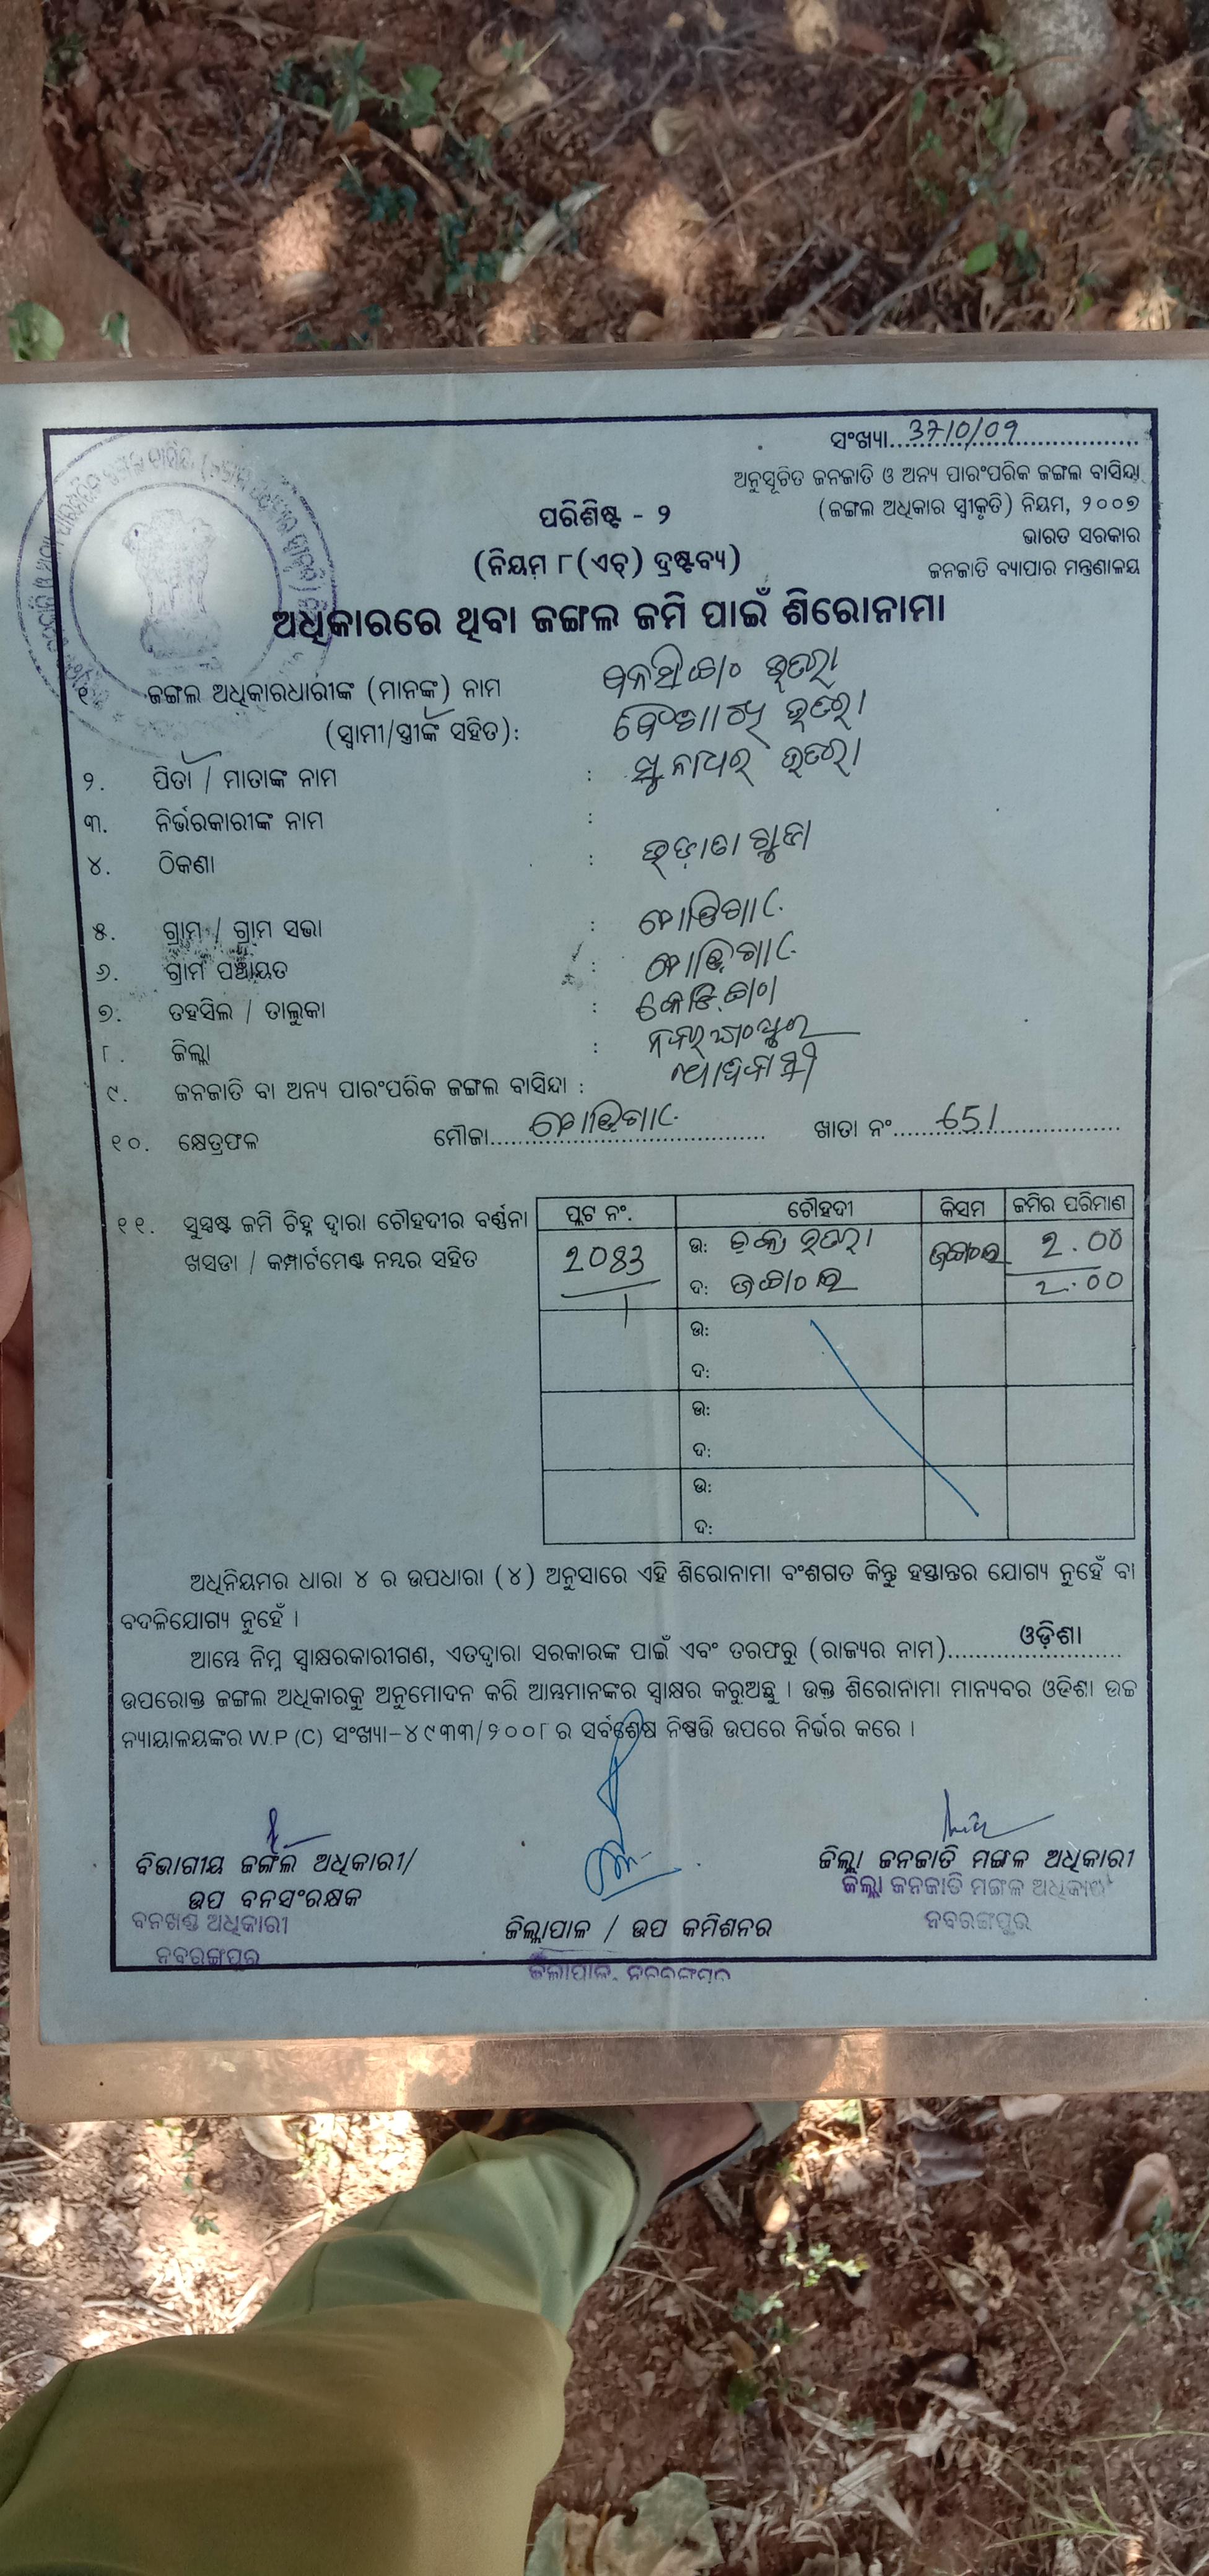 ସଂଖ୍ୟା.......3710/09.......
ଅନୁସୂଚିତ ଜନଜାତି ଓ ଅନ୍ୟ ପାରଂପରିକ ଜଙ୍ଗଲ ବାସିନ୍ଦା
(ଜଙ୍ଗଲ ଅଧିକାର ସ୍ୱୀକୃତି) ନିୟମ, ୨୦୦୭
ଭାରତ ସରକାର
ଜନଜାତି ବ୍ୟାପାର ମନ୍ତ୍ରଣାଳୟ
ପରିଶିଷ୍ଟ - ୨
(ନିୟମ ୮(ଏଚ୍) ଦ୍ରଷ୍ଟବ୍ୟ)
ଅଧିକାରରେ ଥିବା ଜଙ୍ଗଲ ଜମି ପାଇଁ ଶିରୋନାମା
୧. ଜଙ୍ଗଲ ଅଧିକାରଧାରୀଙ୍କ (ମାନଙ୍କ) ନାମ ଭତରା
(ସ୍ୱାମୀ/ସ୍ତ୍ରୀଙ୍କ ସହିତ): ଭତରା
୨. ପିତା / ମାତାଙ୍କ ନାମ : ସୁନାଧର ଭତରା
୩. ନିର୍ଭରକାରୀଙ୍କ ନାମ :
୪. ଠିକଣା :
୫. ଗ୍ରାମ / ଗ୍ରାମ ସଭା :
୬. ଗ୍ରାମ ପଞ୍ଚାୟତ :
୭. ତହସିଲ / ତାଲୁକା :
୮. ଜିଲ୍ଲା : ନବରଂଗପୁର
୯. ଜନଜାତି ବା ଅନ୍ୟ ପାରଂପରିକ ଜଙ୍ଗଲ ବାସିନ୍ଦା : ଆଦିବାସୀ
୧୦. କ୍ଷେତ୍ରଫଳ ମୌଜା....... ଖାତା ନଂ.......651.......
୧୧. ସୁସ୍ପଷ୍ଟ ଜମି ଚିହ୍ନ ଦ୍ୱାରା ଚୌହଦୀର ବର୍ଣ୍ଣନା
ଖସଡା / କମ୍ପାର୍ଟମେଣ୍ଟ ନମ୍ବର ସହିତ
ପ୍ଲଟ ନଂ. ଚୌହଦୀ କିସମ ଜମିର ପରିମାଣ
2083 ଉ: ଭତରା ଜଙ୍ଗଲ 2.00
1 ଦ: ଜଙ୍ଗଲ 2.00
ଉ:
ଦ:
ଉ:
ଦ:
ଉ:
ଦ:
ଅଧିନିୟମର ଧାରା ୪ ର ଉପଧାରା (୪) ଅନୁସାରେ ଏହି ଶିରୋନାମା ବଂଶଗତ କିନ୍ତୁ ହସ୍ତାନ୍ତର ଯୋଗ୍ୟ ନୁହେଁ ବା
ବଦଳିଯୋଗ୍ୟ ନୁହେଁ ।
ଆମ୍ଭେ ନିମ୍ନ ସ୍ୱାକ୍ଷରକାରୀଗଣ, ଏତଦ୍ୱାରା ସରକାରଙ୍କ ପାଇଁ ଏବଂ ତରଫରୁ (ରାଜ୍ୟର ନାମ).......ଓଡ଼ିଶା.......
ଉପରୋକ୍ତ ଜଙ୍ଗଲ ଅଧିକାରକୁ ଅନୁମୋଦନ କରି ଆମ୍ଭମାନଙ୍କର ସ୍ୱାକ୍ଷର କରୁଅଛୁ । ଉକ୍ତ ଶିରୋନାମା ମାନ୍ୟବର ଓଡିଶା ଉଚ୍ଚ
ନ୍ୟାୟାଳୟଙ୍କର W.P (C) ସଂଖ୍ୟା-୪୯୩୩/୨୦୦୮ ର ସର୍ବଶେଷ ନିଷ୍ପତ୍ତି ଉପରେ ନିର୍ଭର କରେ ।
ବିଭାଗୀୟ ଜଙ୍ଗଲ ଅଧିକାରୀ/
ଉପ ବନସଂରକ୍ଷକ
ବନଖଣ୍ଡ ଅଧିକାରୀ
ନବରଙ୍ଗପୁର
ଜିଲ୍ଲାପାଳ / ଉପ କମିଶନର
ଜିଲ୍ଲାପାଳ, ନବରଙ୍ଗପୁର
ଜିଲ୍ଲା ଜନଜାତି ମଙ୍ଗଳ ଅଧିକାରୀ
ଜିଲ୍ଲା ଜନଜାତି ମଙ୍ଗଳ ଅଧିକାରୀ
ନବରଙ୍ଗପୁର